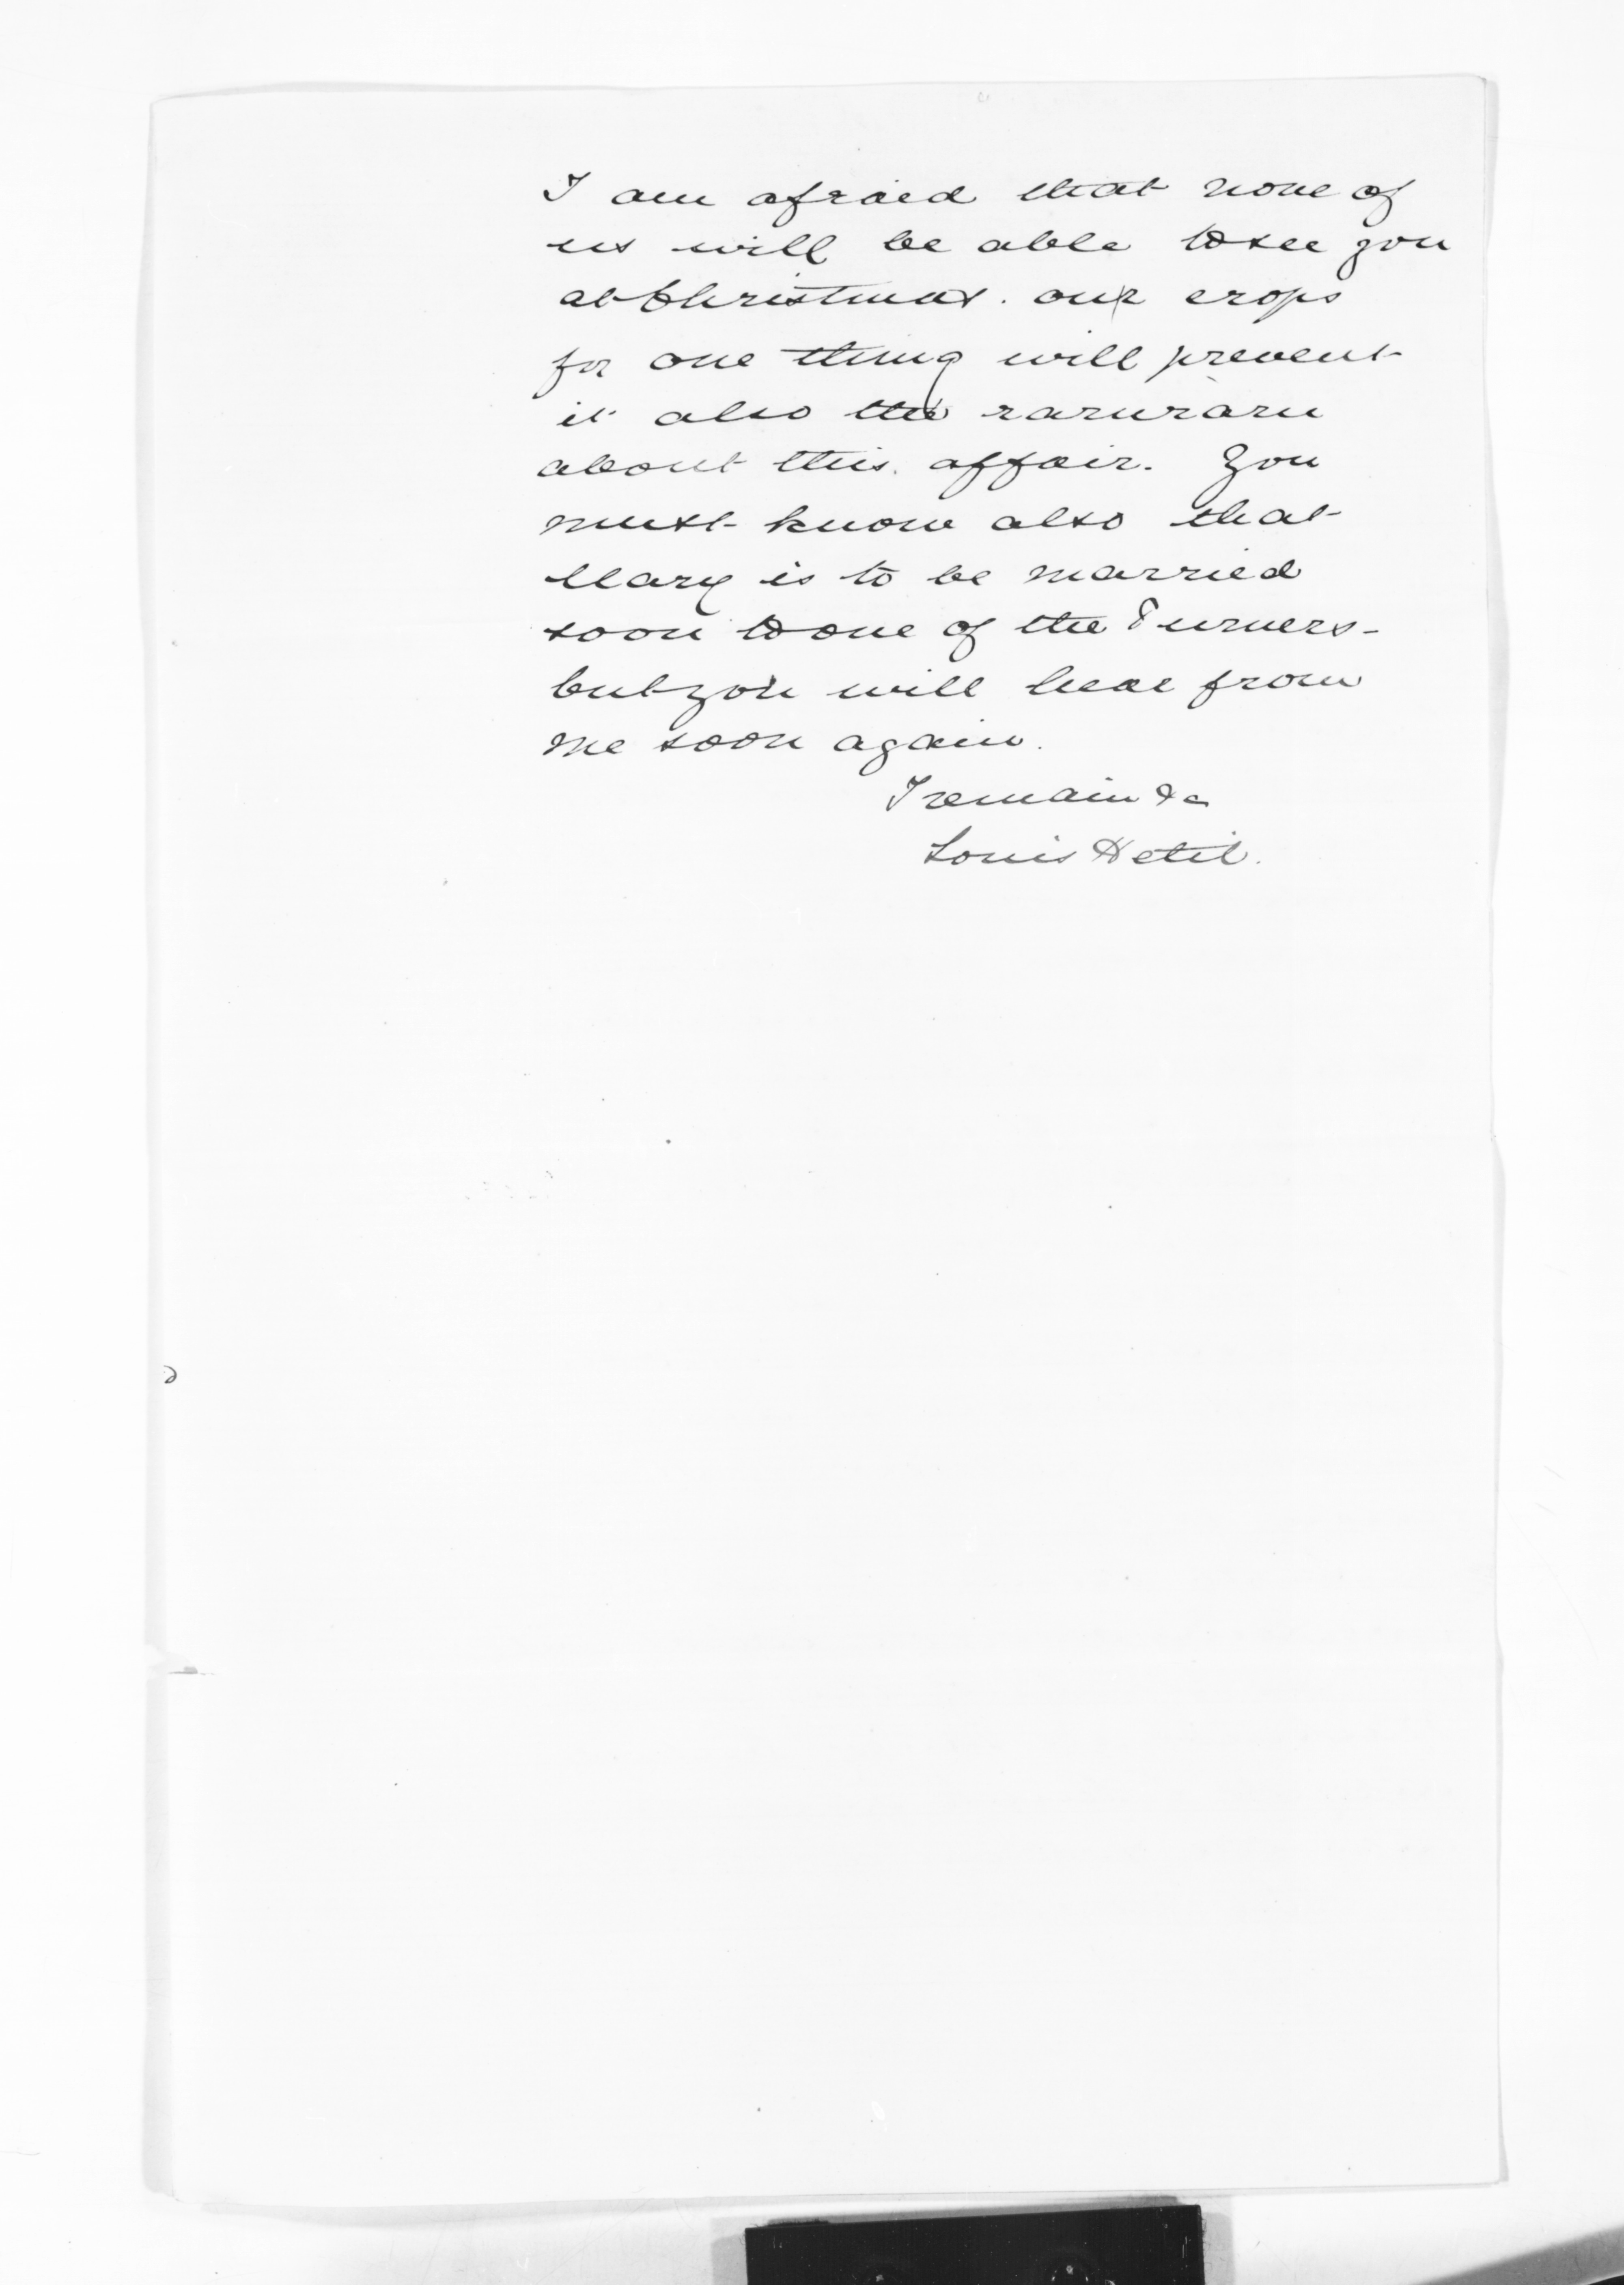 I am afraid that none of
us will be able to see you
at Christmas. our crops
for one thing will prevent
it also the raruraru
about this affair. You
must know also that
Mary is to be married
soon to one of the Turners -
but you will hear from
me soon again.
I remain &c
Louis Hetit.